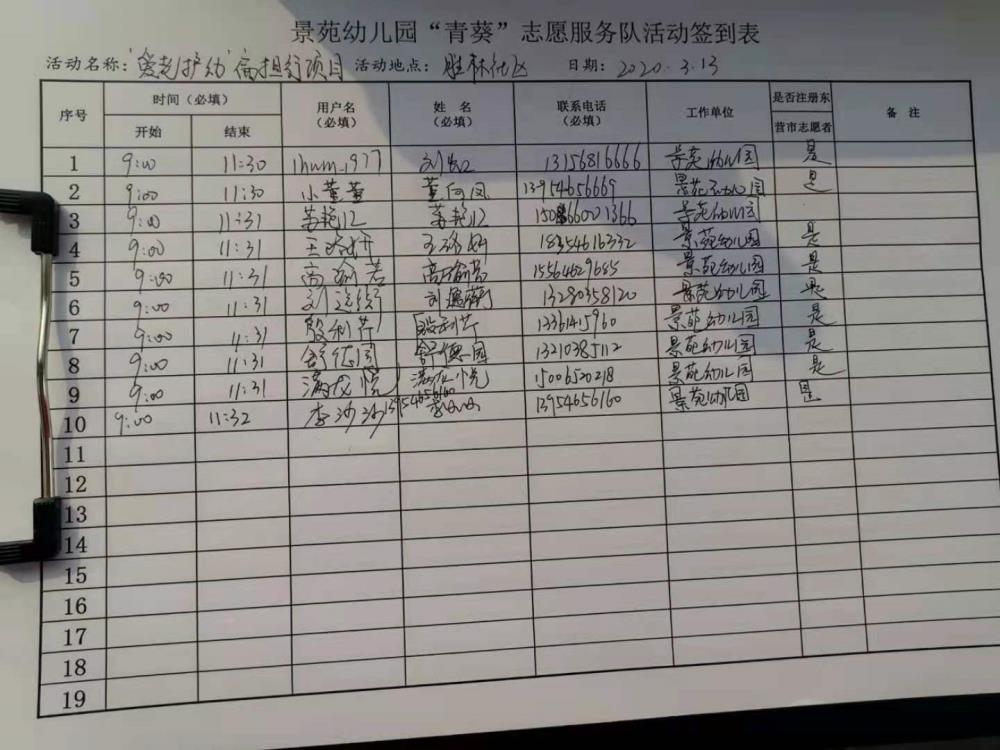 景苑幼儿园“青葵”志愿服务队活动签到表
活动名称：“爱老护幼” 活动地点：胜林社区 日期：2020.3.13
序号 时间（必填） 用户名（必填） 姓名（必填） 联系电话（必填） 工作单位 是否注册东营市志愿者 备注
开始 结束
1 9:00 11:30 13156816666 景苑幼儿园 是
2 9:00 11:30 小董董 13954656669 景苑幼儿园 是
3 9:00 11:31 景苑幼儿园
4 9:00 11:31 18354616332 景苑幼儿园 是
5 9:00 11:31 15564629685 景苑幼儿园 是
6 9:00 11:31 13280358120 景苑幼儿园 是
7 9:00 11:31 殷利芹 殷利芹 13361415960 景苑幼儿园 是
8 9:00 11:31 舒德园 舒德园 13210385112 景苑幼儿园 是
9 9:00 11:31 满龙悦 满龙悦 15006520218 景苑幼儿园 是
10 9:00 11:32 李沙沙 13954656160 李沙沙 13954656160 景苑幼儿园 是
11
12
13
14
15
16
17
18
19